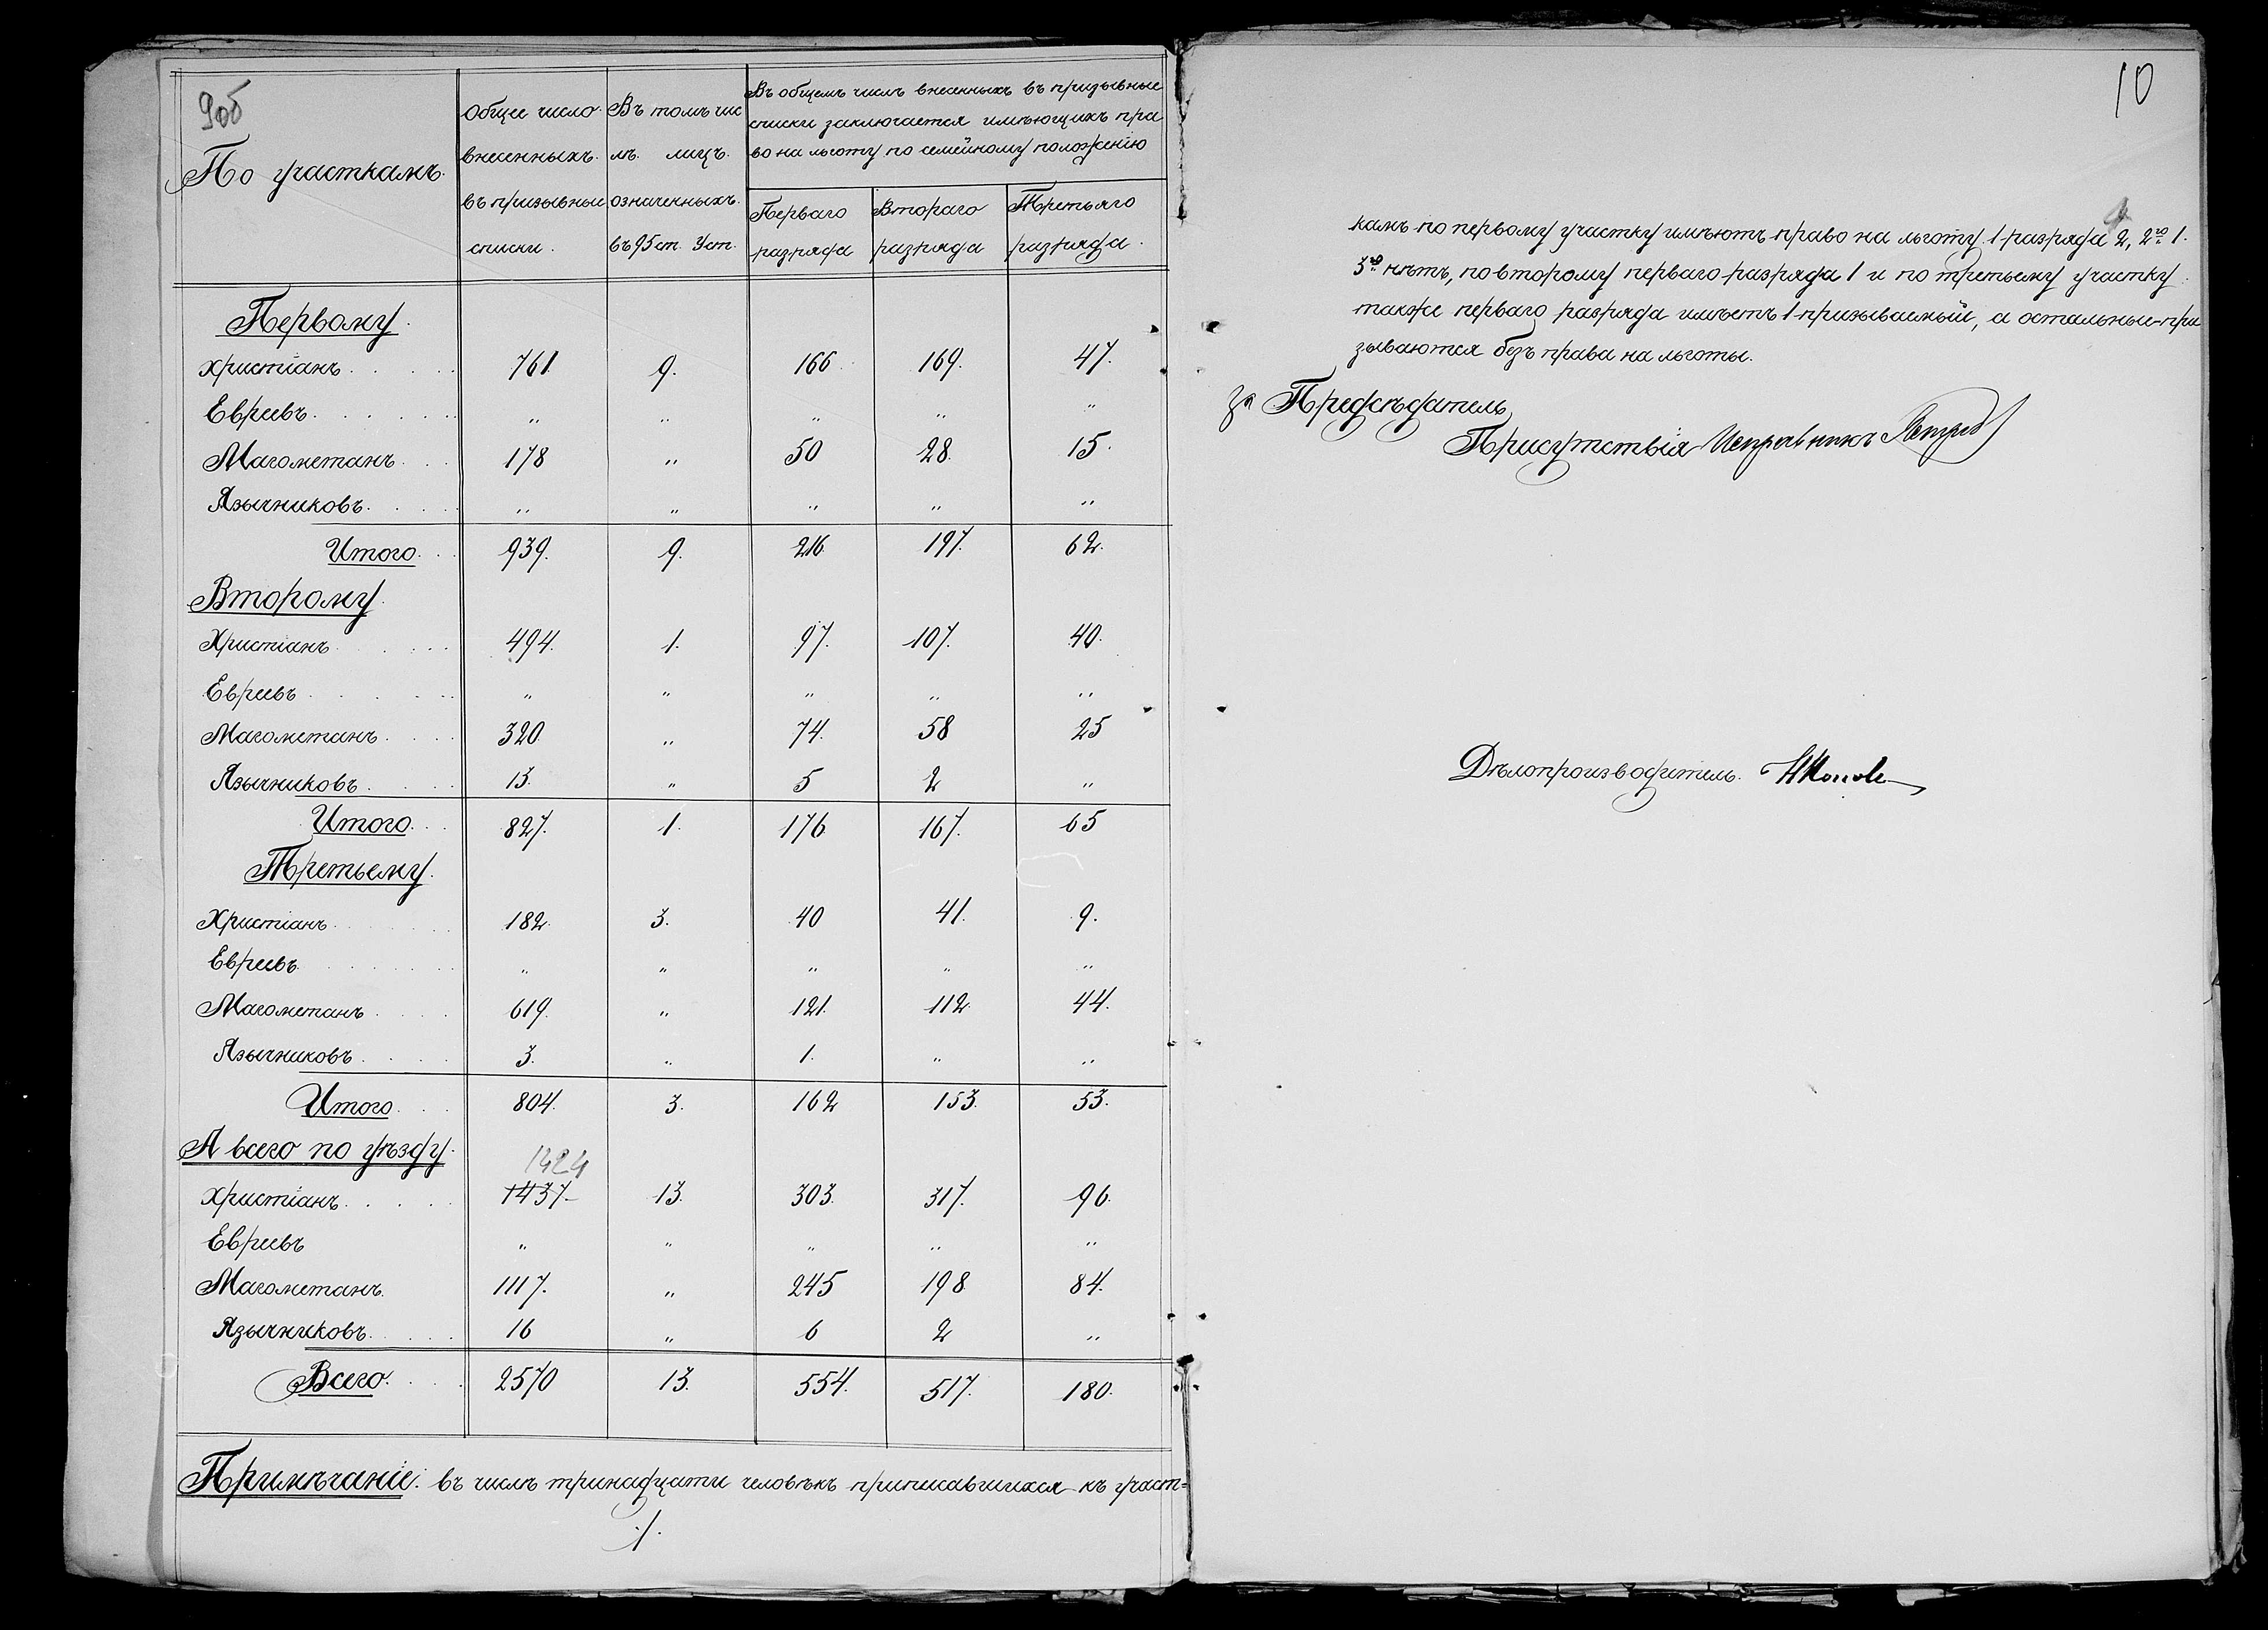 9 об
По участкамъ.
Общее число внесенныхъ въ призывные списки.
Въ томъ числѣ лицъ означенныхъ въ 95 ст. Уст.
Въ общемъ числѣ внесенныхъ въ призывные списки заключается имѣющихъ право на льготу по семейному положенію
Перваго разряда
Второго разряда
Третьяго разряда.
Первому.
Христіанъ 761. 9. 166 169. 47.
Евреевъ „ „ „ „ „
Магометанъ 178 „ 50 28. 15.
Язычниковъ „ „ „ „ „
Итого 939. 9. 216 197. 62.
Второму.
Христіанъ 494. 1. 97. 107. 40.
Евреевъ „ „ „ „ „
Магометанъ 320. „ 74. 58 25
Язычниковъ 13. „ 5 2 „
Итого 827. 1. 176 167. 65
Третьему.
Христіанъ 182. 3. 40 41. 9.
Евреевъ „ „ „ „ „
Магометанъ 619. „ 121. 112. 44.
Язычниковъ 3. „ 1. „ „
Итого 804. 3. 162 153. 53.
А всего по уѣзду.
1424
Христіанъ 1437 13. 303. 317. 96.
Евреевъ „ „ „ „ „
Магометанъ. 1117. „ 245 198 84.
Язычниковъ 16 „ 6 2 „
Всего. 2570 13. 554. 517. 180.
Примѣчаніе: въ числѣ тринадцати человѣкъ приписавшихся къ участ=
./.
10
камъ по первому участку имѣютъ право на льготу 1 разряда 2, 2го 1.
3го нѣтъ, по второму перваго разряда 1 и по третьему участку
также перваго разряда имѣетъ 1 призываемый, а остальные при
зываются безъ права на льготы.
За Предсѣдатель
Присутствія Исправникъ
Дѣлопроизводитель.